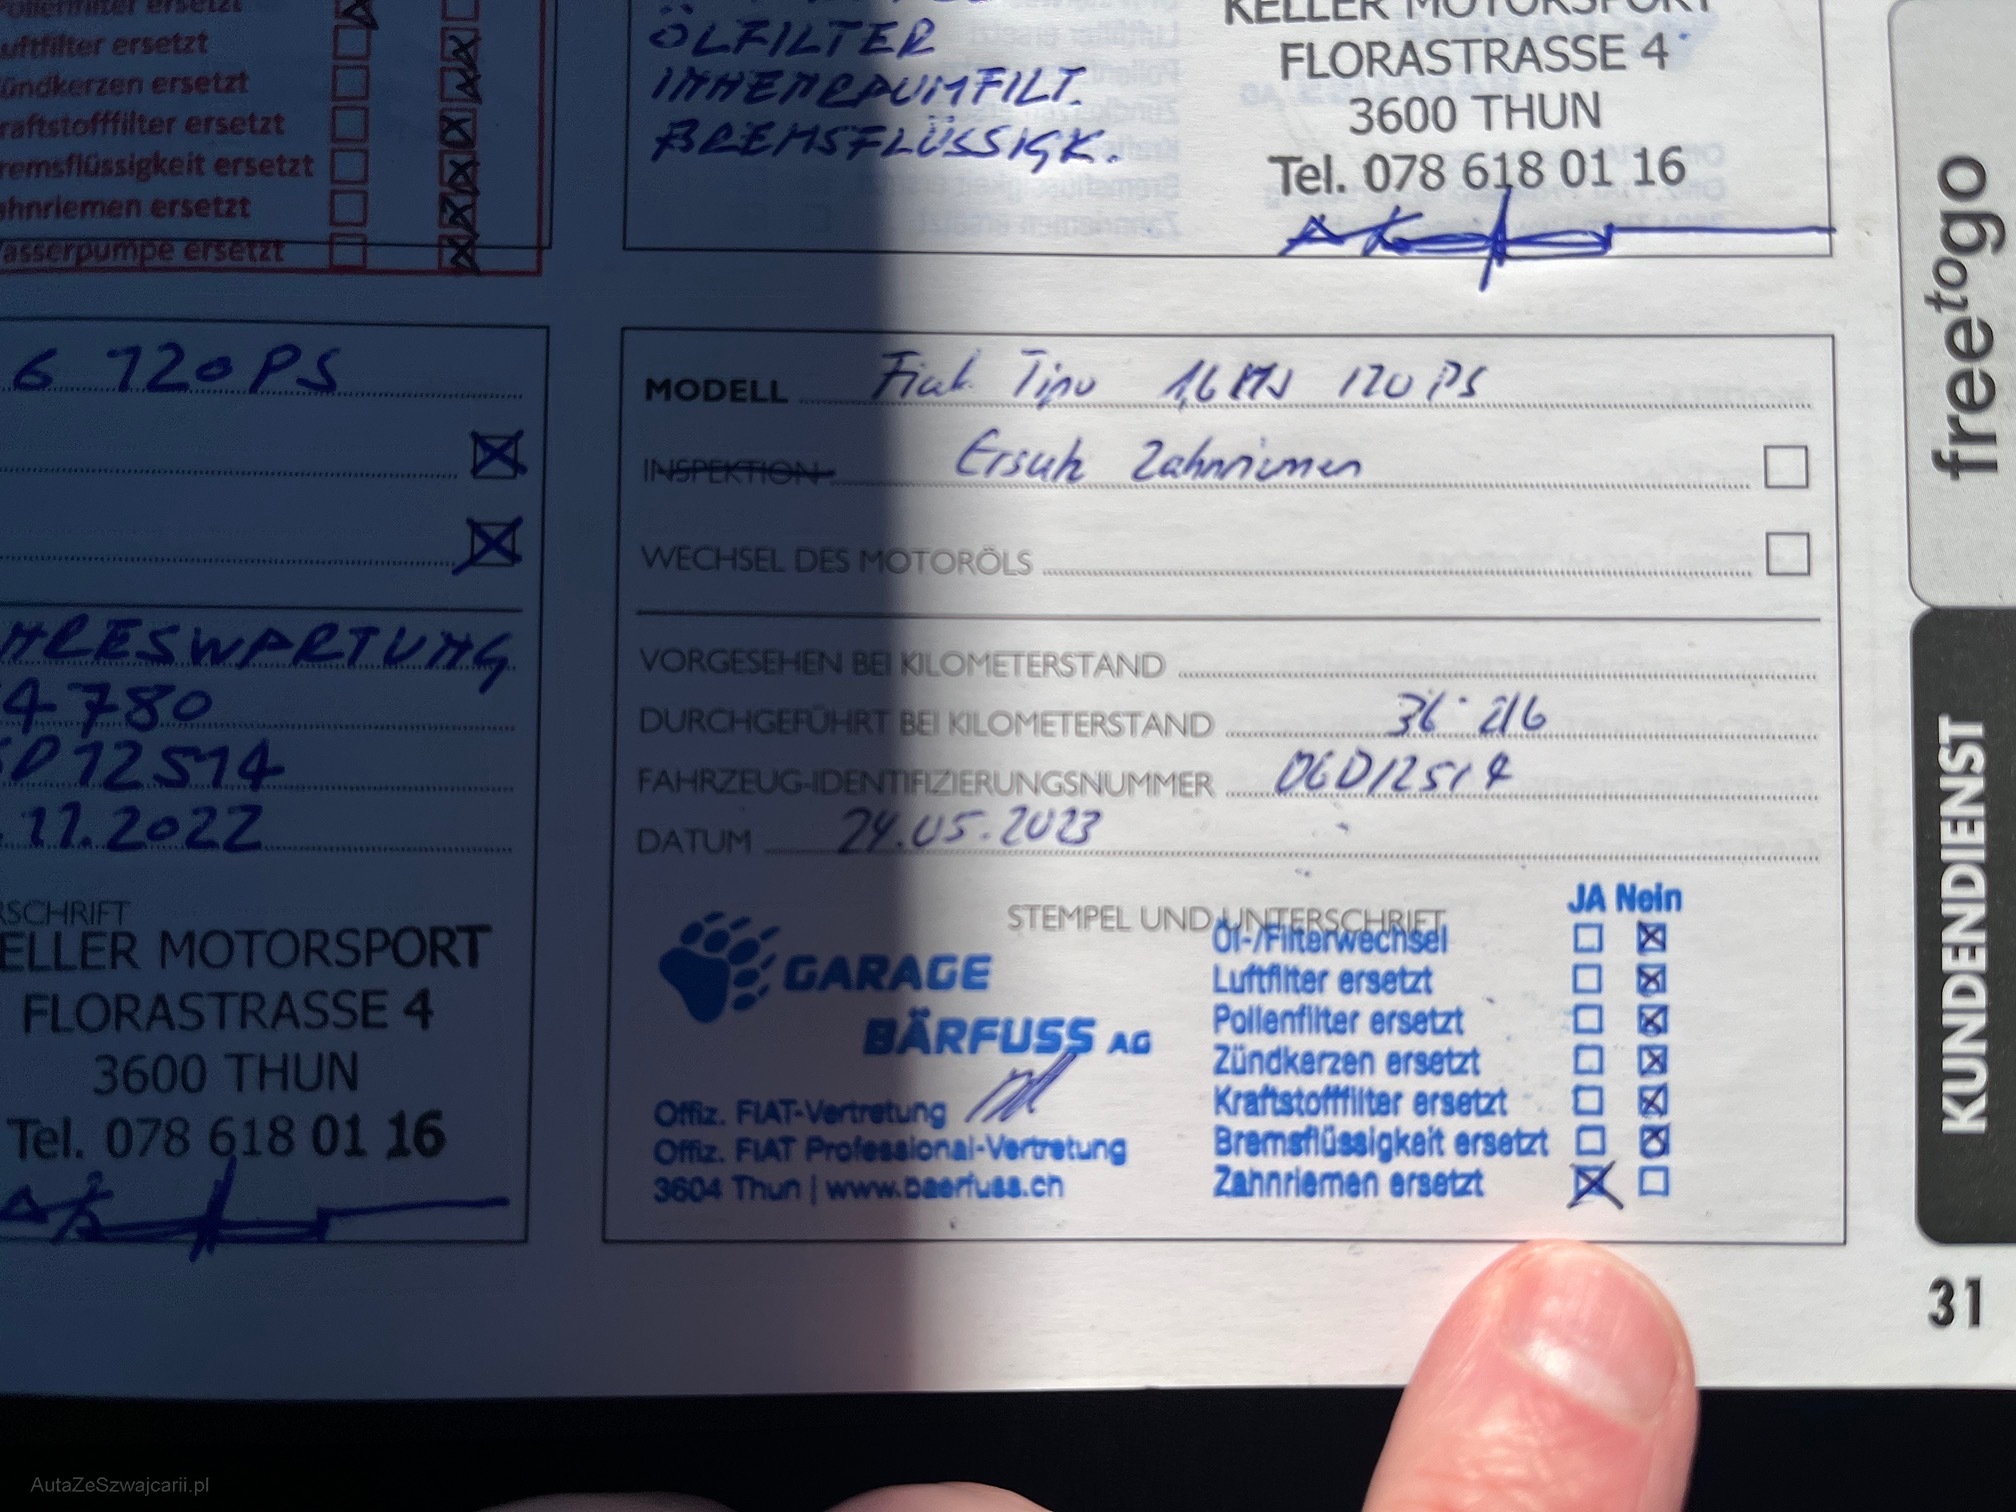 Pollenfilter ersetzt
uftfilter ersetzt
ündkerzen ersetzt
raftstofffilter ersetzt
remsflüssigkeit ersetzt
ahnriemen ersetzt
asserpumpe ersetzt
ÖLFILTER
INNENRAUMFILT.
BREMSFLÜSSIGK.
KELLER MOTORSPORT
FLORASTRASSE 4
3600 THUN
Tel. 078 618 01 16
6 120 PS
HRESWARTUNG
4780
D12514
.11.2022
RSCHRIFT
ELLER MOTORSPORT
FLORASTRASSE 4
3600 THUN
Tel. 078 618 01 16
MODELL Fiat Tipo 1,6 120 PS
INSPEKTION Ersatz Zahnriemen
WECHSEL DES MOTORÖLS
VORGESEHEN BEI KILOMETERSTAND
DURCHGEFÜHRT BEI KILOMETERSTAND 36'216
FAHRZEUG-IDENTIFIZIERUNGSNUMMER 06D12514
DATUM 24.05.2023
STEMPEL UND UNTERSCHRIFT
GARAGE
BÄRFUSS AG
Offiz. FIAT-Vertretung
Offiz. FIAT Professional-Vertretung
3604 Thun | www.baerfuss.ch
JA Nein
Öl-/Filterwechsel
Luftfilter ersetzt
Pollenfilter ersetzt
Zündkerzen ersetzt
Kraftstofffilter ersetzt
Bremsflüssigkeit ersetzt
Zahnriemen ersetzt
freetogo
KUNDENDIENST
31
AutaZeSzwajcarii.pl